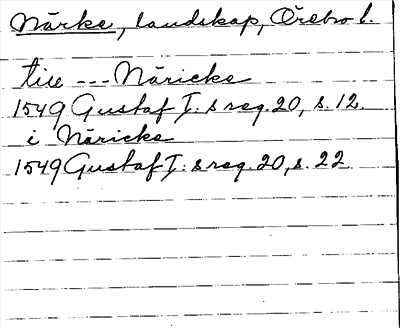 Närke, landskap, Örebro l.
till --- Näricke
1549 Gustaf I:s reg. 20, s. 12.
i Näricke
1549 Gustaf I:s reg. 20, s. 22